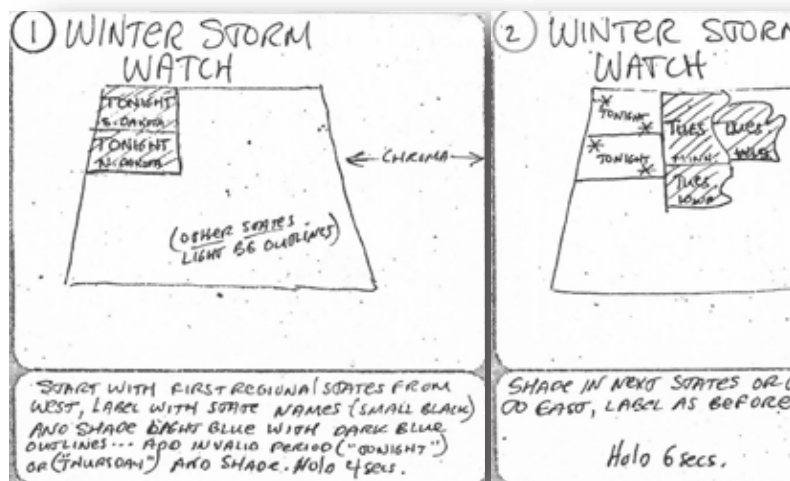 1 WINTER STORM
WATCH
TONIGHT
S. DAKOTA
TONIGHT
N. DAKOTA
CHROMA
(OTHER STATES
LIGHT BG OUTLINES)
START WITH FIRST REGIONAL STATES FROM
WEST, LABEL WITH STATE NAMES (SMALL BLACK)
AND SHADE LIGHT BLUE WITH DARK BLUE
OUTLINES... ADD IN VALID PERIOD ("TONIGHT")
OR ("THURSDAY") AND SHADE. HOLD 4 SECS.
2 WINTER STORM
WATCH
TONIGHT
TONIGHT
TUES
MINN.
TUES
WIS
TUES.
IOWA
SHADE IN NEXT STATES OR
TO EAST, LABEL AS BEFORE
HOLD 6 SECS.